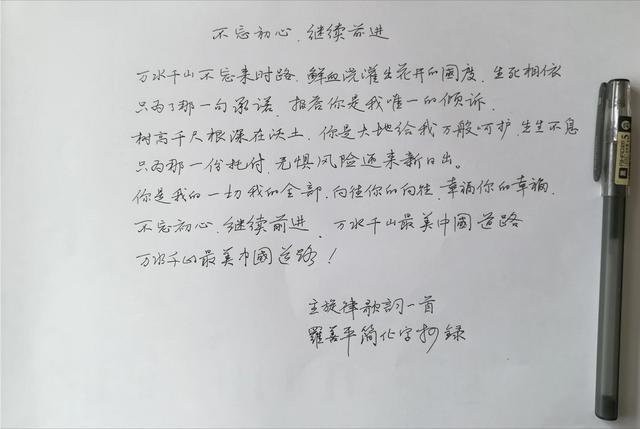 不忘初心.继续前进
万水千山不忘来时路.鲜血浇灌生花开的國度.生死相依
只为了那一句承诺.报答你是我唯一的倾诉.
树高千尺根深在沃土.你是大地给我万般呵护.生生不息
只为那一份托付.无惧风险迎来新日出。
你是我的一切我的全部.向往你的向往.幸福你的幸福.
不忘初心.继续前进.万水千山最美中國道路
万水千山最美中國道路！
主旋律歌詞一首
羅善平简化字抄録